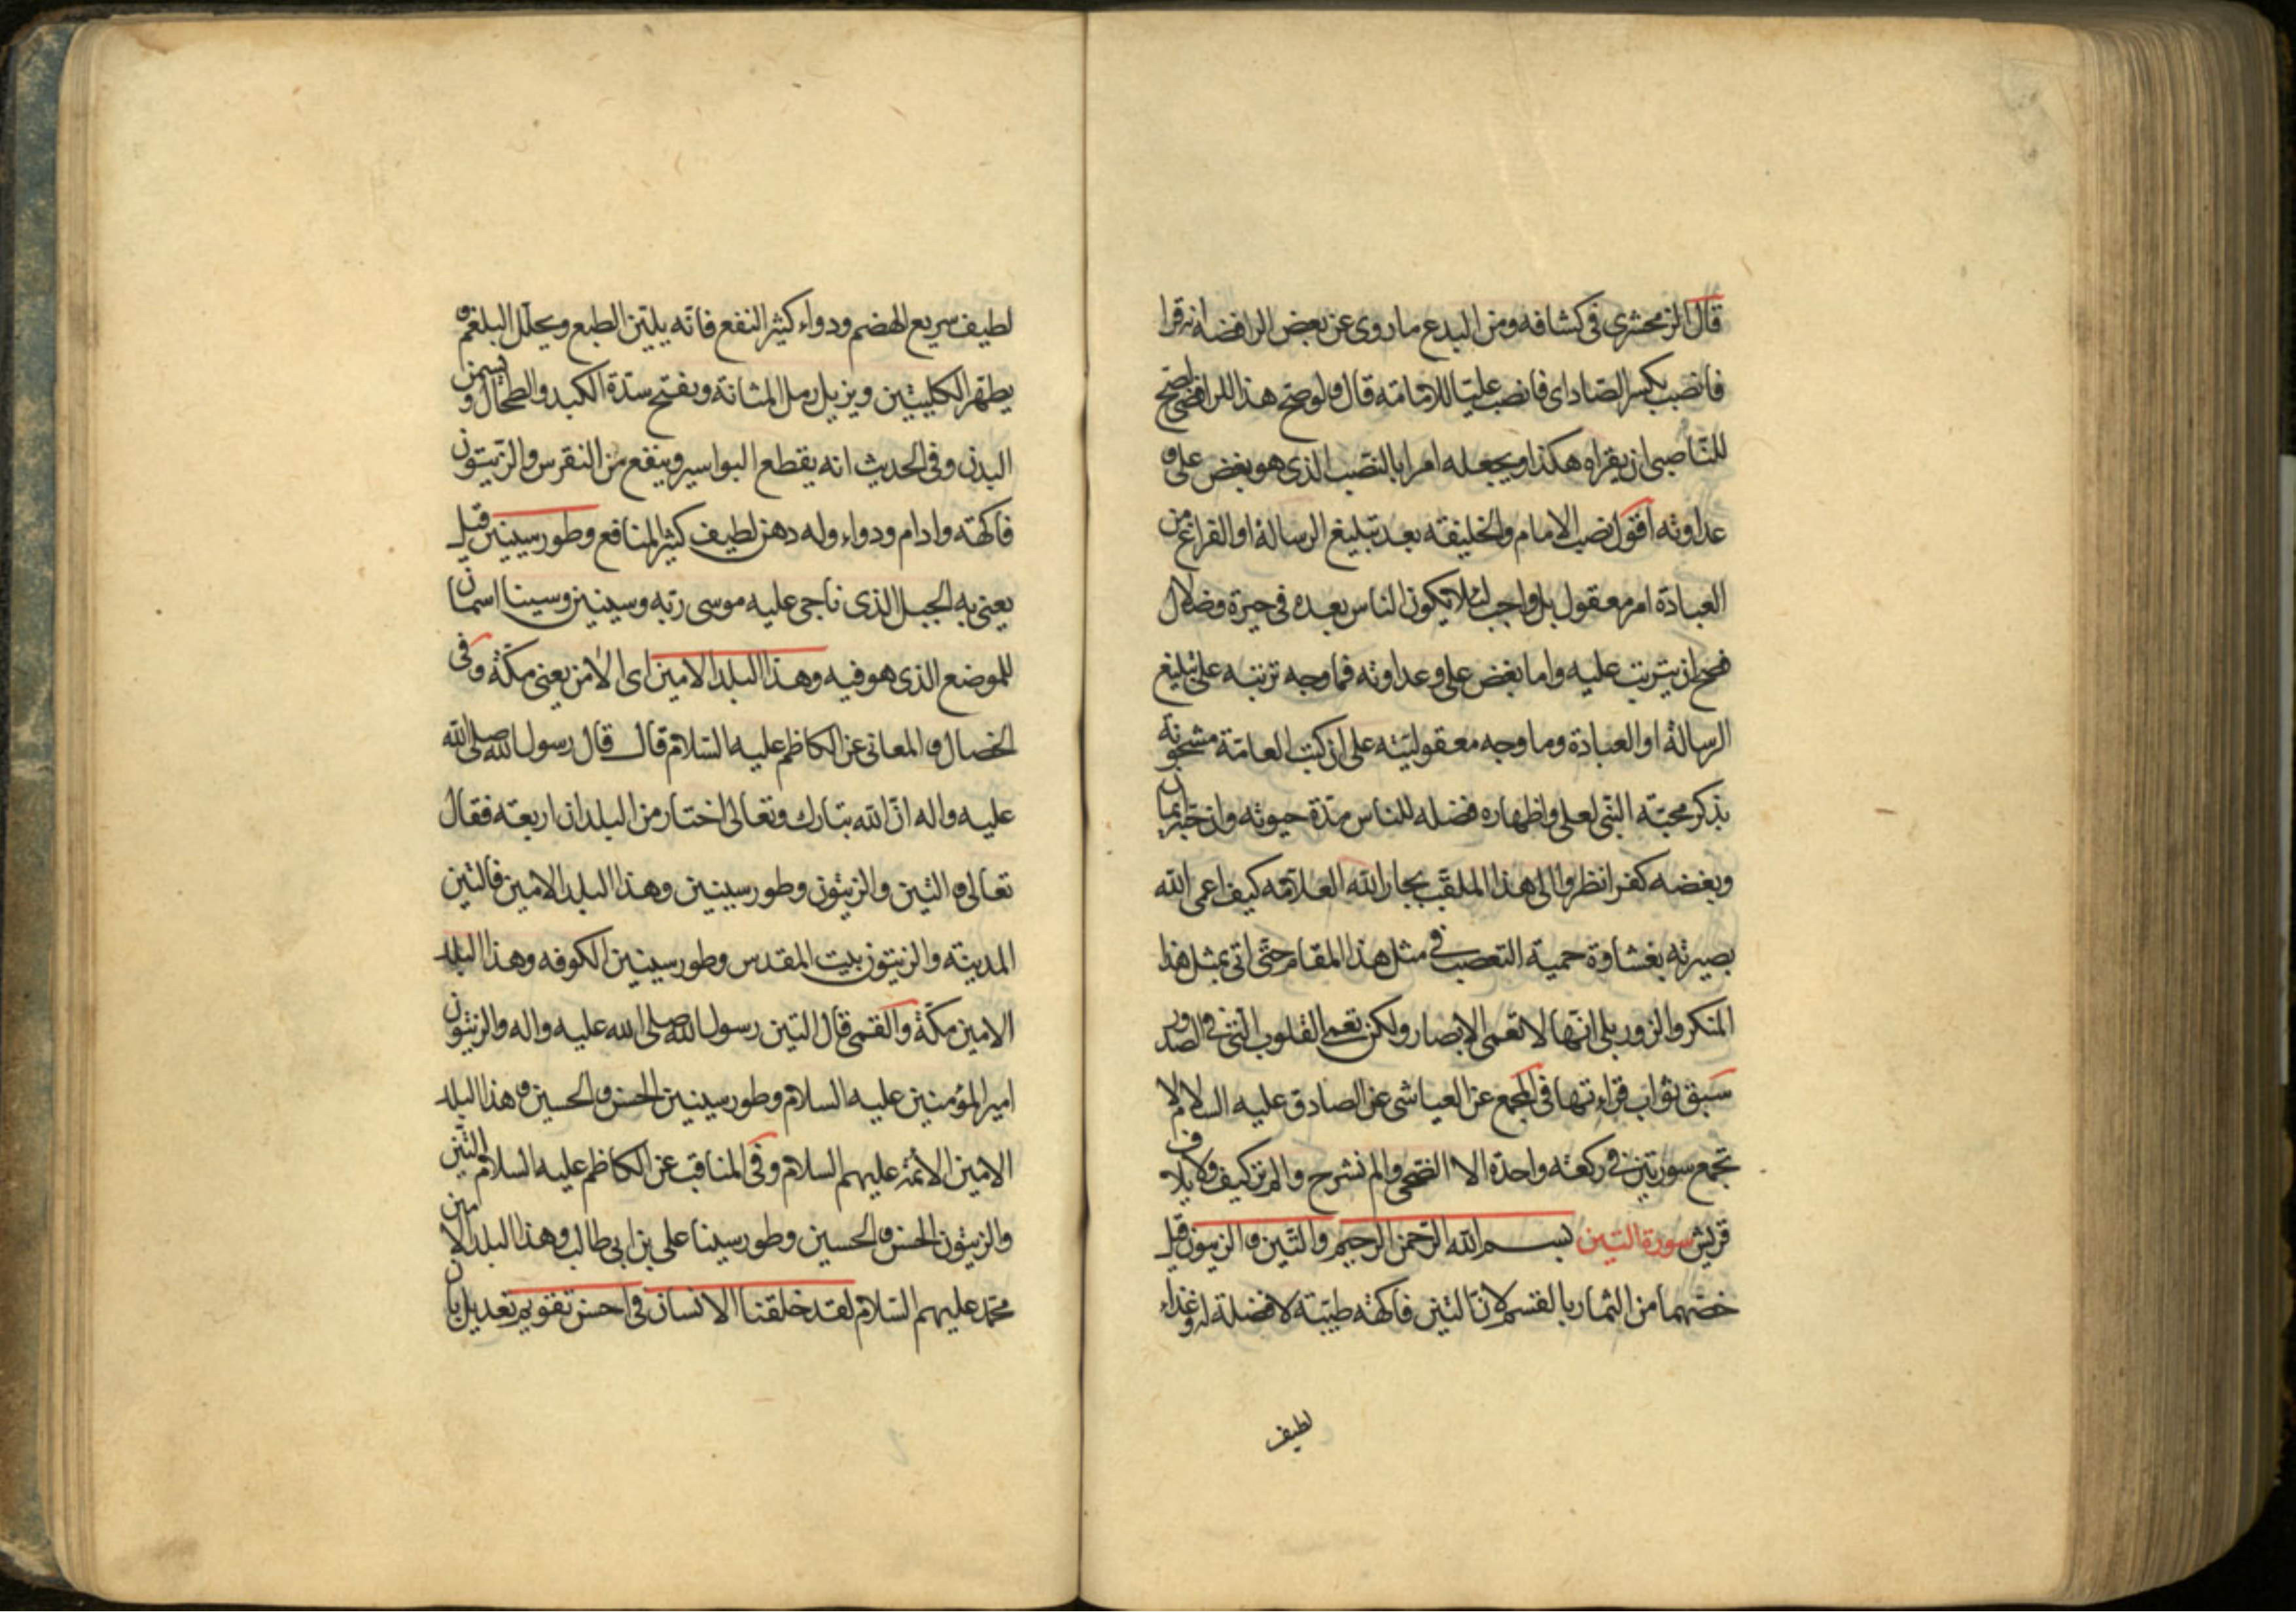 قال الزمخشري في كشافه ومن البدع ما روى عن بعض الرافضة انه قرا
فانصب بكسر الصاد اى فانصب عليّا للامامة قال ولو صح هذا للرافضي لصح
للنّاصبى ان يقراه هكذا ويجعله امرا بالنصب الذى هو بغض على و
عداوته اقول نصب الامام والخليفة بعد تبليغ الرسالة او الفراغ من
العبادة امر معقول بل واجب لئلا يكون الناس بعده فى حيرة وضلال
فصح ان يترتب عليه واما بغض على وعداوته فما وجه ترتبه على تبليغ
الرسالة او العبادة وما وجه معقوليته على ان كتب العامّة مشحونة
بذكر محبّة النبى لعلى واظهاره فضله للناس مدّة حيوته وان حبّه ايمان
وبغضه كفر انظروا الى هذا الملقب بجار الله العلامة كيف اعمى الله
بصيرته بغشاوة حمية التعصب فى مثل هذا المقام حتّى اتى بمثل هذا
المنكر والزور بلى انّها لا تعمى الابصار ولكن تعمى القلوب التى فى الصدور
سبق ثواب قراءتها فى المجمع عن العياشى عن الصادق عليه السلام لا
تجمع سورتين فى ركعة واحدة الا الضحى والم نشرح والم تر كيف ولايلاف
قريش سورة التين بسم الله الرّحمن الرحيم والتّين والزيتون قيل
خصّهما من الثمار بالقسم لانّ التين فاكهة طيّبة لا فضلة له وغذاء
لطيف
لطيف سريع الهضم ودواء كثير النفع فانّه يليّن الطبع ويحلّل البلغم و
يطهّر الكليتين ويزيل رمل المثانة ويفتح سدّة الكبد والطحال ويسمن
البدن وفى الحديث انه يقطع البواسير وينفع من النقرس والزّيتون
فاكهة وادام ودواء وله دهن لطيف كثير المنافع وطور سينين قيل
يعنى به الجبل الذى ناجى عليه موسى ربّه وسينين وسينا اسمان
للموضع الذى هو فيه وهذا البلد الامين اى الآمن يعنى مكّة وفى
الخصال والمعانى عن الكاظم عليه السّلام قال قال رسول الله صلى الله
عليه واله انّ الله تبارك وتعالى اختار من البلدان اربعة فقال
تعالى و التين والزيتون وطور سينين وهذا البلد الامين فالتين
المدينة والزيتون بيت المقدس وطور سينين الكوفه وهذا البلد
الامين مكّة والقمى قال التين رسول الله صلى الله عليه واله والزيتون
امير المؤمنين عليه السلام وطور سينين الحسن والحسين وهذا البلد
الامين الائمة عليهم السلام وفى المناقب عن الكاظم عليه السلام التين
والزيتون الحسن والحسين وطور سينا على بن ابى طالب وهذا البلد الامين
محمّد عليهم السّلام لقد خلقنا الانسان فى احسن تقويم تعديل بان